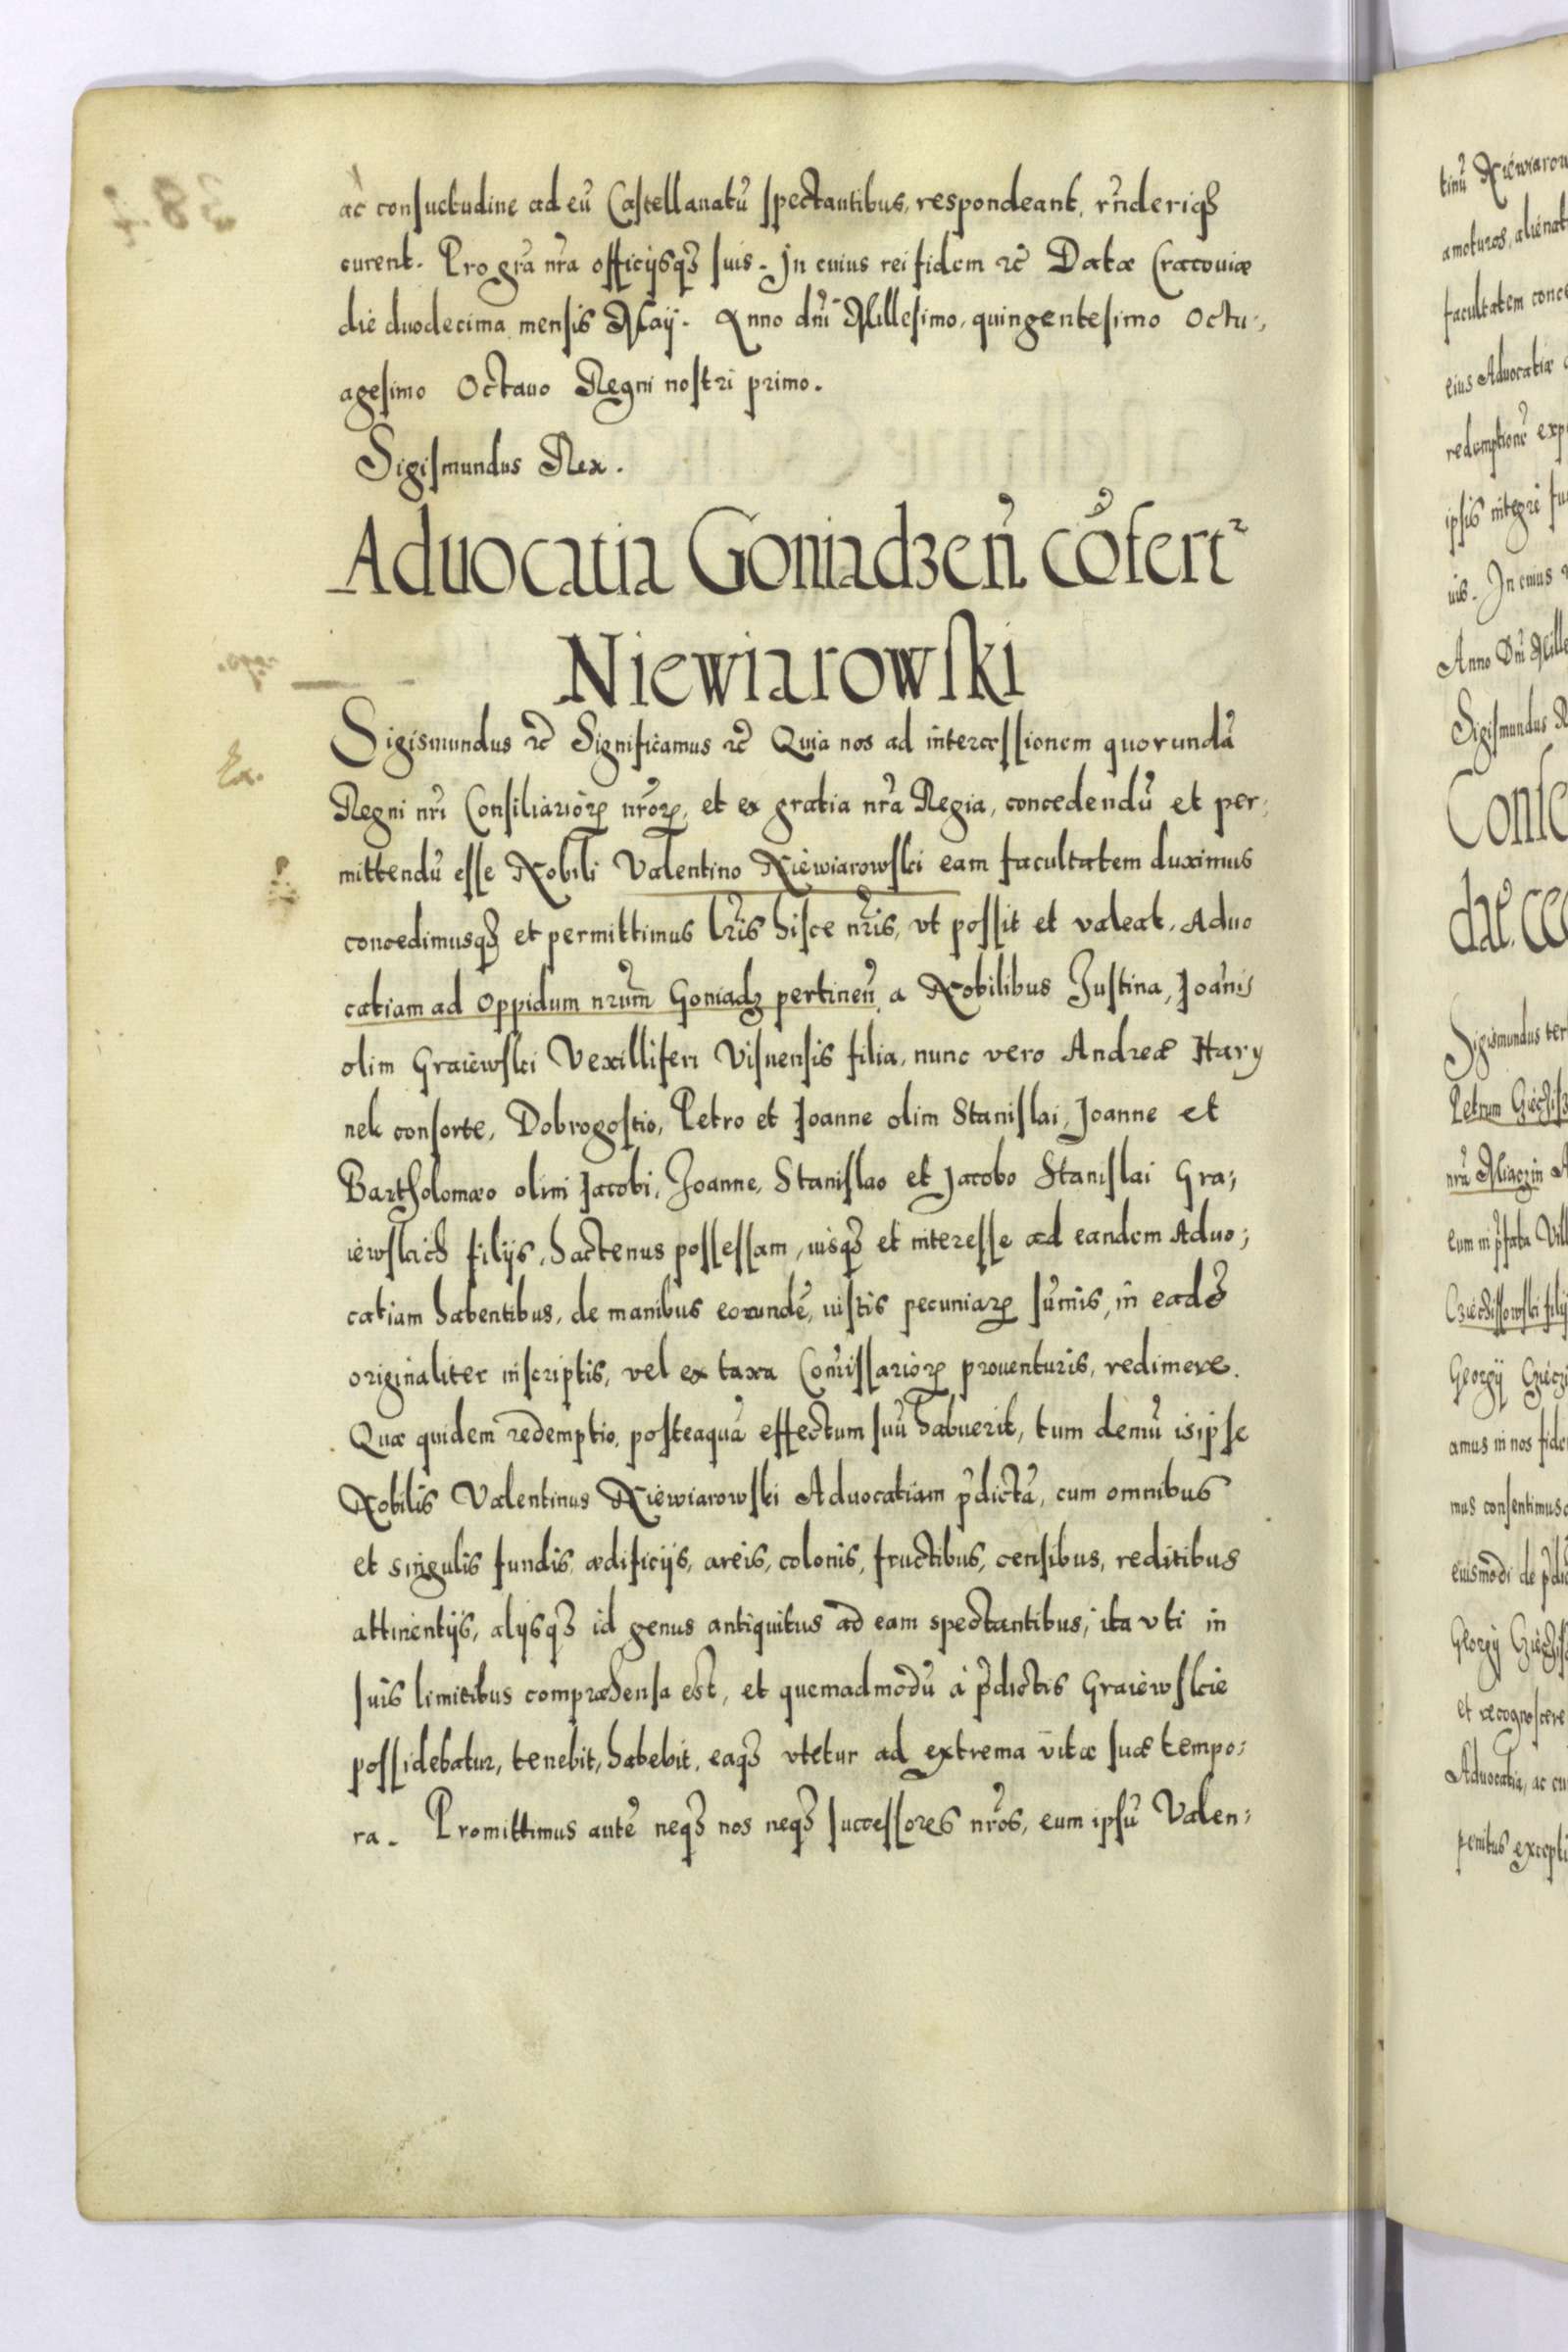 ac consuetudine ad eũ Castellanatũ spectantibus, respondeant, rñderiq3
curent. Pro gra nra officijsq3 suis. In cuius rei fidem rc̃ Datæ Cracouiæ
die duodecima mensis Maij. Anno dni Millesimo, quingentesimo Octu-,
agesimo Octauo Regni nostri primo.
Sigismundus Rex.
Aduocatia Goniadzeñ cõfert²
Niewiarowski
Sigismundus rc̃ Significamus rc̃ Quia nos ad intercessionem quorundã
Regni nri Consiliarioꝝ nroꝝ, et ex gratia nra Regia, concedendũ et per;
mittendũ esse Nobili Valentino Niewiarowski eam facultatem duximus
concedimusq3 et permittimus lris hisce nris, vt possit et valeat, Aduo
catiam ad Oppidum nrum Goniadz pertineñ, a Nobilibus Justina, Joãnis
olim Graiewski Vexilliferi Visnensis filia, nunc vero Andreæ Hary
nek consorte, Dobrogostio, Petro et Joanne olim Stanislai, Joanne et
Bartholomæo olim Jacobi, Joanne, Stanislao et Jacobo Stanislai Gra;
iewskich filijs, hactenus possessam, iusq3 et interesse ad eandem Aduo;
catiam habentibus, de manibus eorundẽ, iustis pecuniaꝝ sũmis, in eadẽ
originaliter inscriptis, vel ex taxa Com̃issarioꝝ prouenturis, redimere.
Quæ quidem redemptio, posteaquã effectum suũ habuerit, tum demũ is ipse
Nobilis Valentinus Niewiarowski Aduocatiam p̃dictã, cum omnibus
et singulis fundis, ædificijs, areis, colonis, fructibus, censibus, reditibus
attinentijs, alijsq3 id genus antiquitus ad eam spectantibus, ita vti in
suis limitibus compræhensa est, et quemadmodũ à p̃dictis Graiewskie
possidebatur, tenebit, habebit, eaq3 vtetur ad extrema vitæ suæ tempo;
ra. Promittimus autẽ neq3 nos neq3 successores nros, eum ipsũ Valen;